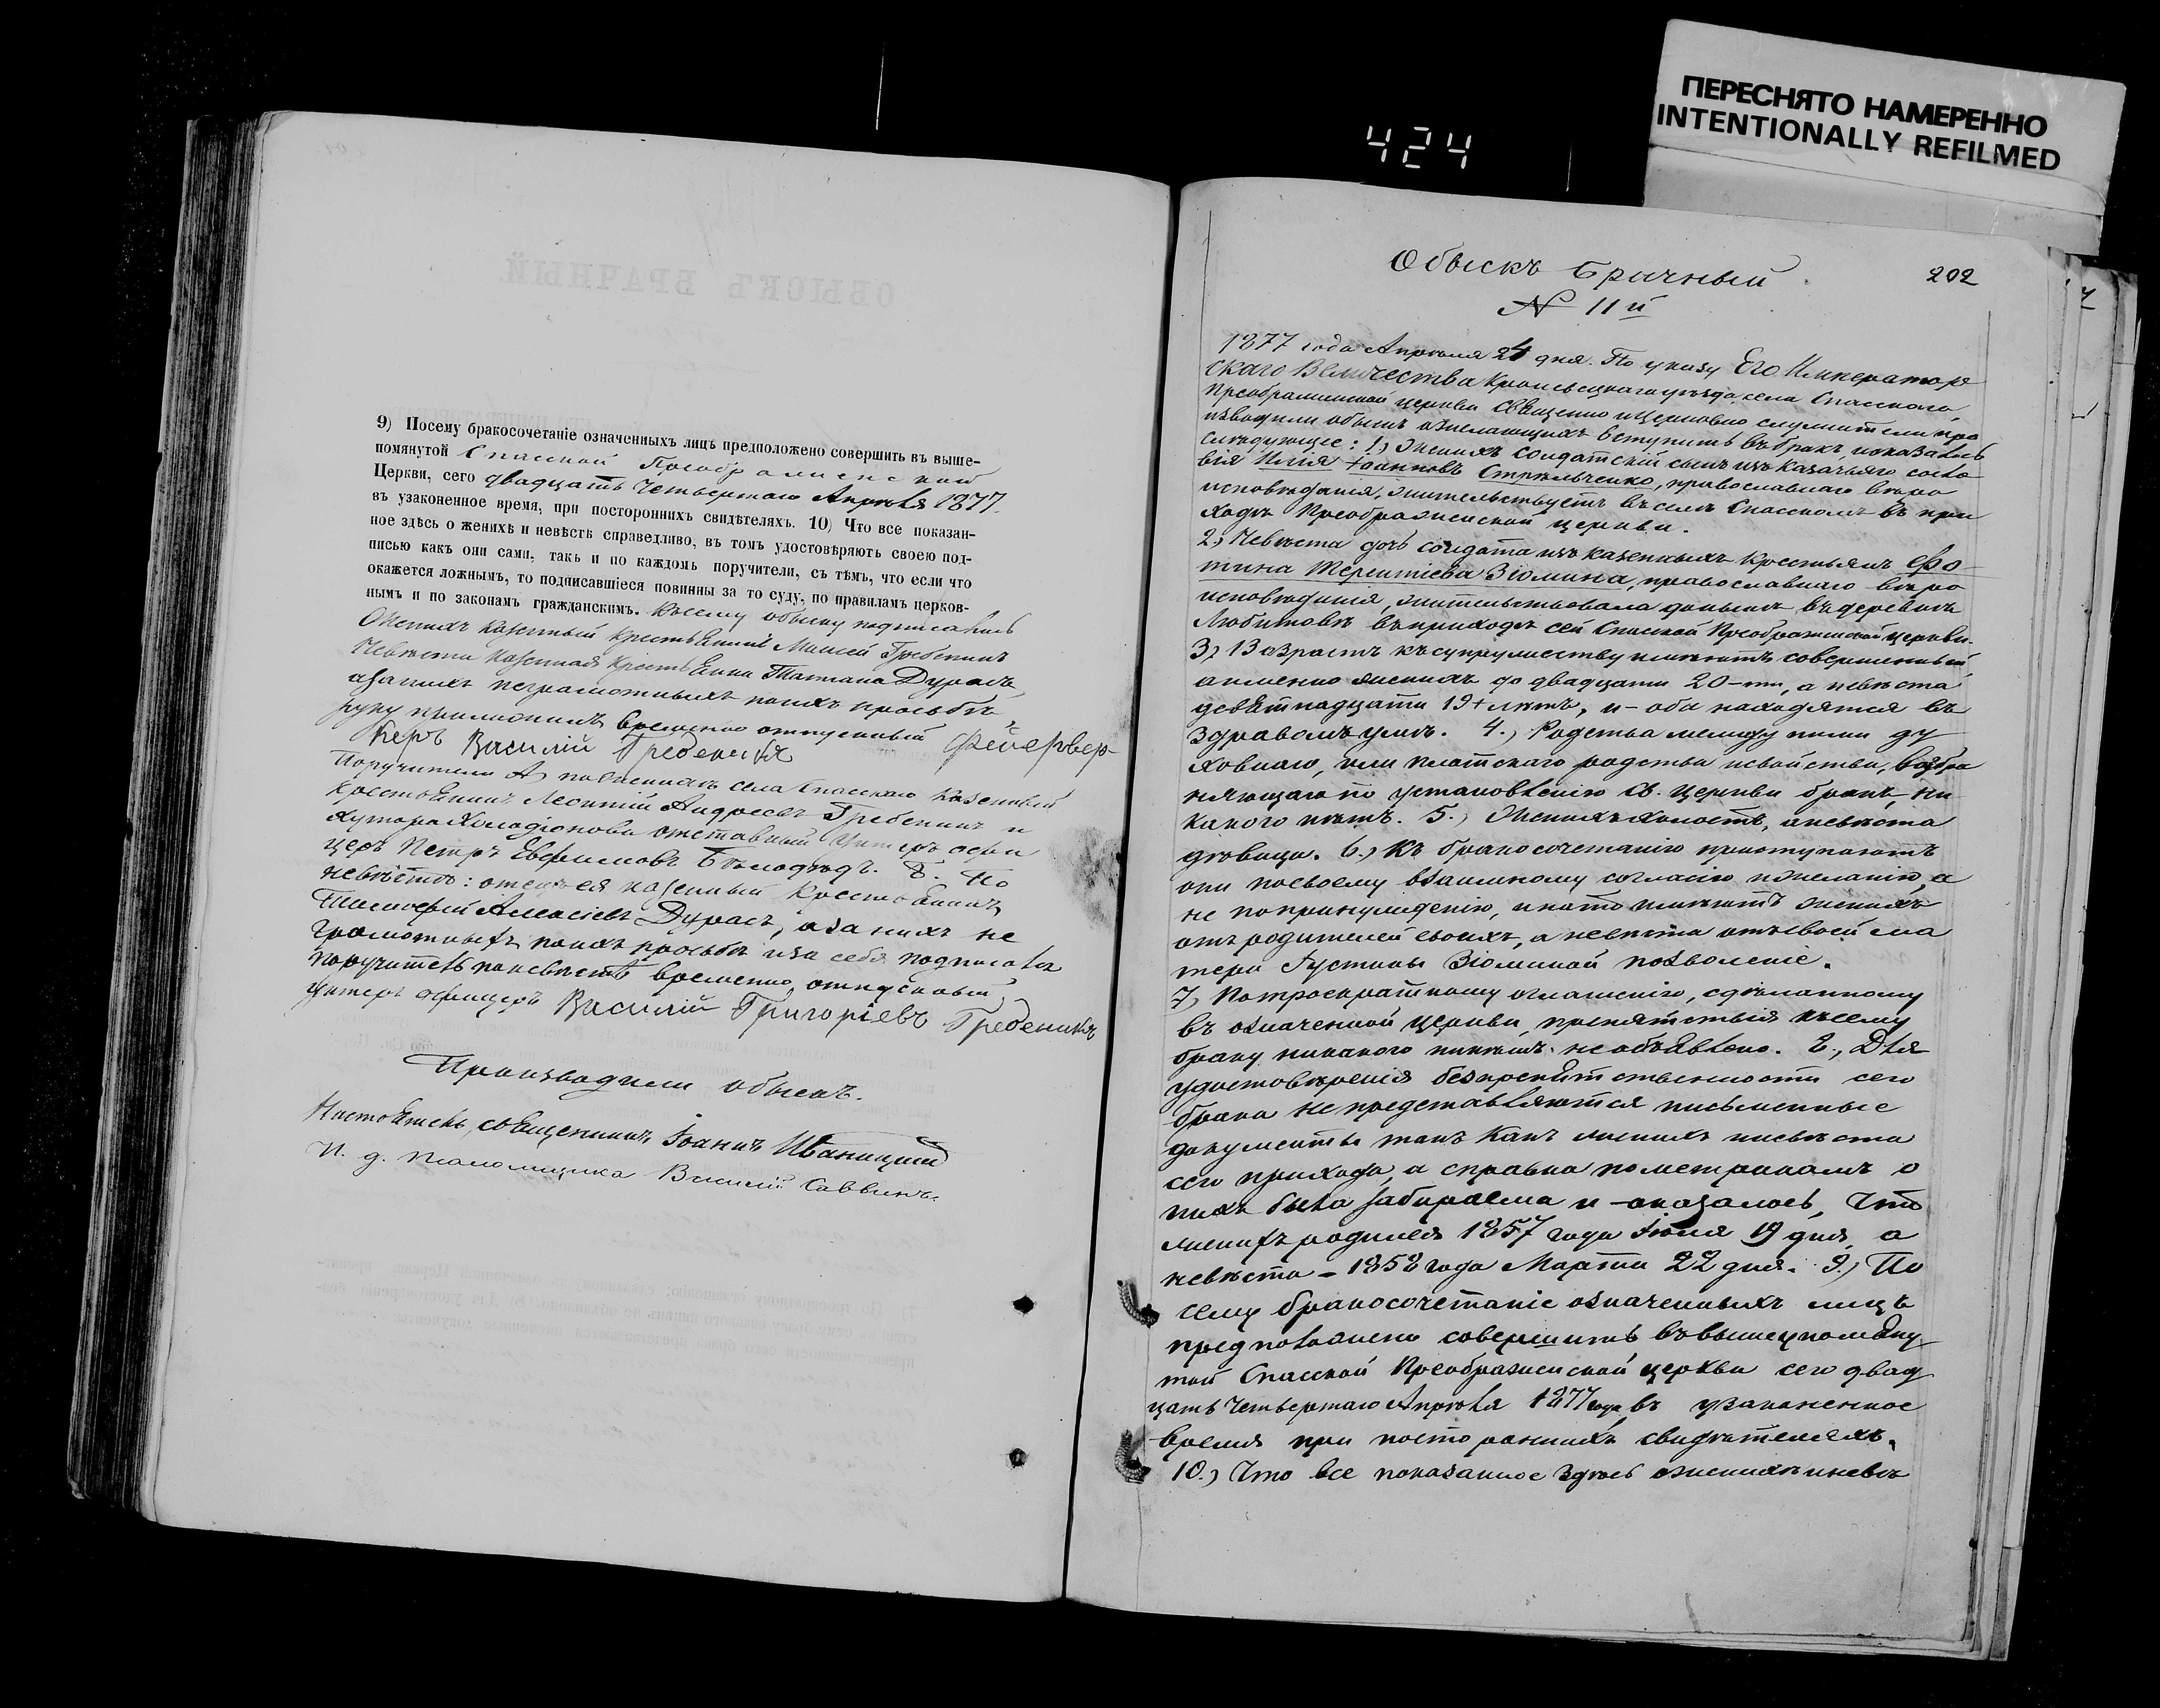 ПЕРЕСНЯТО НАМЕРЕННО
INTENTIONALLY REFILMED
424
9) Посему бракосочетаніе означенныхъ лицъ предположено совершить въ выше-
помянутой Спасской Преображенской
Церкви, сего двадцать четвертаго Апрѣля 1877.
въ узаконенное время, при постороннихъ свидѣтеляхъ. 10) Что все показан-
ное здѣсь о женихѣ и невѣстѣ справедливо, въ томъ удостовѣряютъ своею под-
писью какъ они сами, такъ и по каждомъ поручители, съ тѣмъ, что если что
окажется ложнымъ, то подписавшіеся повинны за то суду, по правиламъ церков-
нымъ и по законамъ гражданскимъ. К сему обыску подписались
Женихъ казенный крестьянинъ Моисей Гребеникъ
Невѣста казенная крестьянка Татіана Дурасъ
а за нихъ неграмотныхъ по ихъ просьбѣ
руку приложилъ временно отпускный Фейервер-
керъ Василій Гребеникъ
Поручители А) по женихѣ села Спасскаго казенный
крестьянинъ Леонтій Андреевъ Гребеникъ и
хутора отставный унтеръ офи
церъ Петръ Евфимовъ Бѣлодѣдъ. Б. По
невѣстѣ: отецъ ея казенный крестьянинъ
Тимофей Дурасъ, а за нихъ не
грамотныхъ по ихъ просьбѣ и за себя подписался
поручитель по невѣстѣ временно отпускный
унтеръ офицеръ Василій Григорьевъ Гребеникъ
Производили обыскъ.
Настоятель, священникъ Іоаннъ Иваницкій
И. д. псаломщика Василій Саввинъ.
202
Обыскъ брачный
№ 11й
1877 года Апрѣля 24 дня. По указу Его Император
скаго Величества Кролевецкаго уѣзда, села Спасскаго
Преображенской церкви священно и церковно служители про
изводили обыскъ о желающихъ вступить въ бракъ, и оказалось
слѣдующее: 1) Женихъ солдатскій сынъ изъ казачьяго сосло
вія Илія Іоанновъ Стрѣльченко, православнаго вѣро
исповѣданія, жительствуетъ въ селѣ Спасскомъ въ при
ходѣ Преображенской церкви.
2) Невѣста дочь солдата изъ казенныхъ крестьянъ Фо
тина Терентіева Зюмина, православнаго вѣро
исповѣданія, жительствовала донынѣ въ деревнѣ
Любитовкѣ въ приходѣ сей Спасской Преображенской церкви.
3) Возрастъ къ супружеству имѣютъ совершенный
а именно женихъ до двадцати 20-ти, а невѣста
девятнадцати 19 лѣтъ, и - оба находятся въ
здравомъ умѣ. 4.) Родства между ними ду
ховнаго, или плотскаго родства и свойства, возбра
няющаго по установленію Св. церкви бракъ, ни
какого нѣтъ. 5.) Женихъ холостъ, а невѣста
дѣвица. 6.) Къ бракосочетанію приступаютъ
они по своему взаимному согласію и желанію, а
не по принужденію, и на то имѣютъ женихъ
отъ родителей своихъ, а невѣста отъ своей ма
тери Іустины Зюминой позволеніе.
7) По троекратному оглашенію, сдѣланному
въ означенной церкви, препятствія къ сему
браку никакого никѣмъ не объявлено. 8., Для
удостовѣренія безпрепятственности сего
брака не представляются письменные
документы такъ какъ женихъ и невѣста
сего прихода, а справка по метрикамъ о
нихъ была забираема и - оказалось, что
женихъ родился 1857 года Іюля 19 дня, а
невѣста - 1858 года Марта 22 дня. 9.) По
сему бракосочетаніе означенныхъ лицъ
предположено совершить въ вышеупомяну
той Спасской Преображенской церкви сего двад
цать четвертаго Апрѣля 1877 года въ узаконенное
время при постороннихъ свидѣтеляхъ.
10.) Что все показанное здѣсь о женихѣ и невѣ